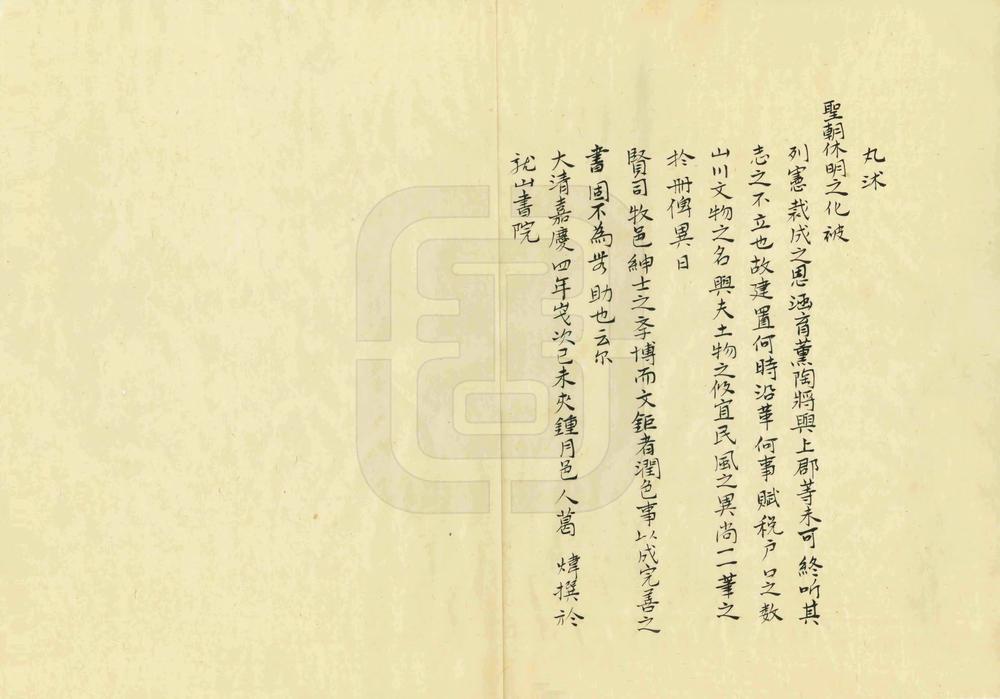 丸沭
聖朝休明之化被
列憲裁成之恩涵育薰陶將興上郡等未可終听其
志之不立也故建置何時沿革何事賦税户口之数
山川文物之名與夫土物之攸宜民風之異尚一一筆之
扵冊俾異日
賢司牧邑紳士之孝博而文鉅者潤色事以成完善之
書固不為旡助也云尔
大清嘉慶四年歲次己未夾鍾月邑人葛 煒撰於
龍山書院